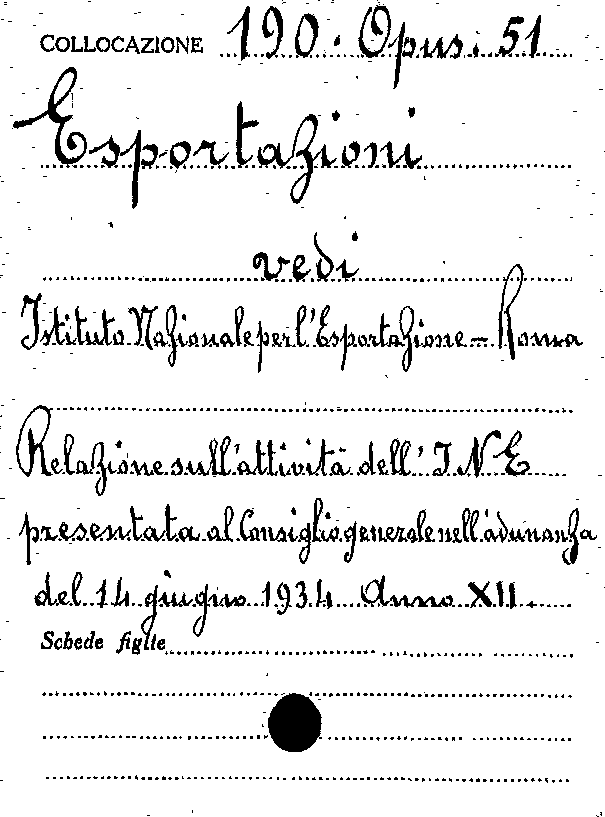 COLLOCAZIONE 190. Opus. 51
Esportazioni
vedi
Istituto Nazionale per l'Esportazione - Roma
Relazione sull'attività dell' I N E
presentata al Consiglio generale nell'adunanza
del 14 giugno 1934 Anno XII.
Schede figlie